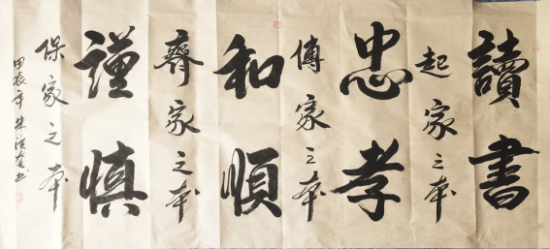 讀書
起家之本
忠孝
傳家之本
和順
齊家之本
謹慎
保家之本
甲辰年朱